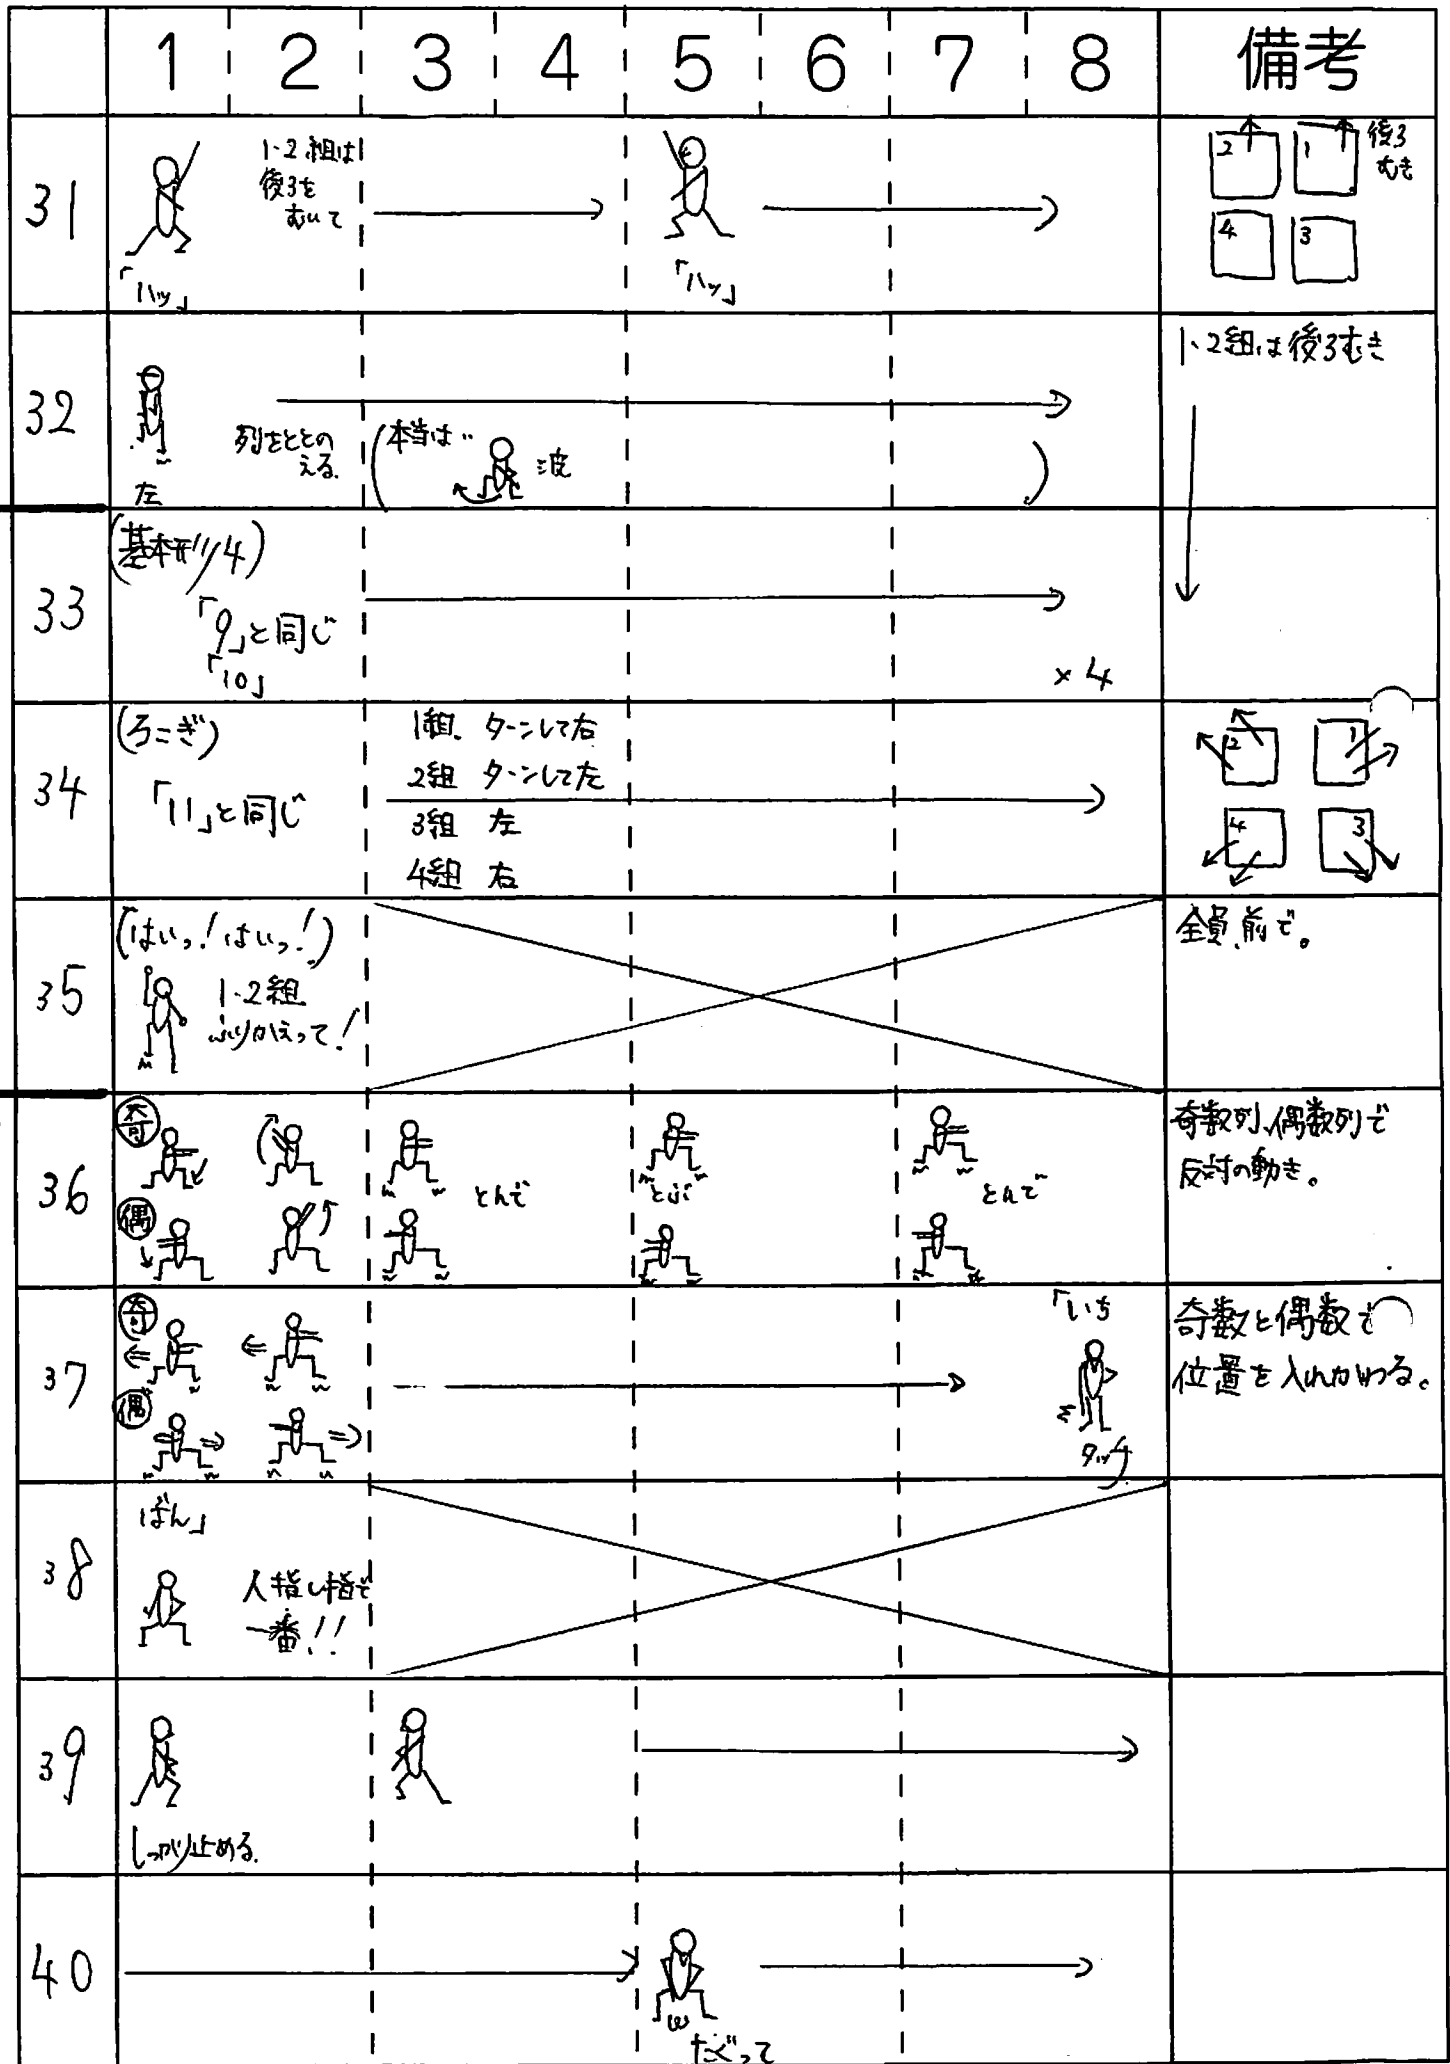 1 2 3 4 5 6 7 8 備考
31
1・2組は
後ろを
むいて
「ハッ」
「ハッ」
2 1 後ろ
むき
4 3
32
左
列をととの
える.
(本当は‥
波)
1、2組は後ろむき
33
(基本形/4)
「9」と同じ
「10」
×4
34
(ろこぎ)
「11」と同じ
1組、ターンして右
2組 ターンして左
3組 左
4組 右
2 1
4 3
35
(はいっ!はいっ!)
1、2組
ふりかえって!
全員、前で。
36
奇
偶
とんで
とぶ
とんで
奇数列、偶数列で
反対の動き。
37
奇
偶
「いち
タッチ
奇数と偶数で
位置を入れかわる。
38
ばん」
人指し指で
一番!!
39
しっかり止める.
40
だって